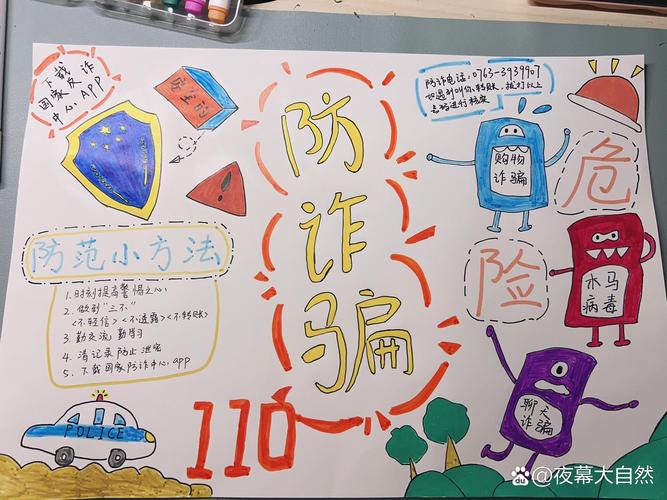 下载
国家反诈
中心APP
防
诈
骗
防诈电话:0763-3939907
如遇到叫你转账,拨打以上
号码进行档案
购物
诈骗
危
险
木马
病毒
聊天
诈骗
防范小方法
1. 时刻提高警惕之心
2. 做到"三不"
<不轻信><不透露><不转账>
3. 勤交流 勤学习
4. 清记录 防止泄密
5. 下载国家防诈中心app
POLICE
110
du@夜幕大自然